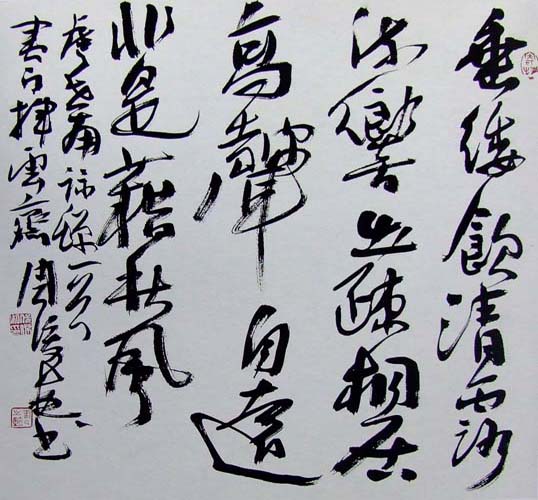 垂緌飲清露
流響出疏桐居
高聲自遠
非是藉秋風
虞世南詠蟬一首
書于揮雲齋周俊杰書